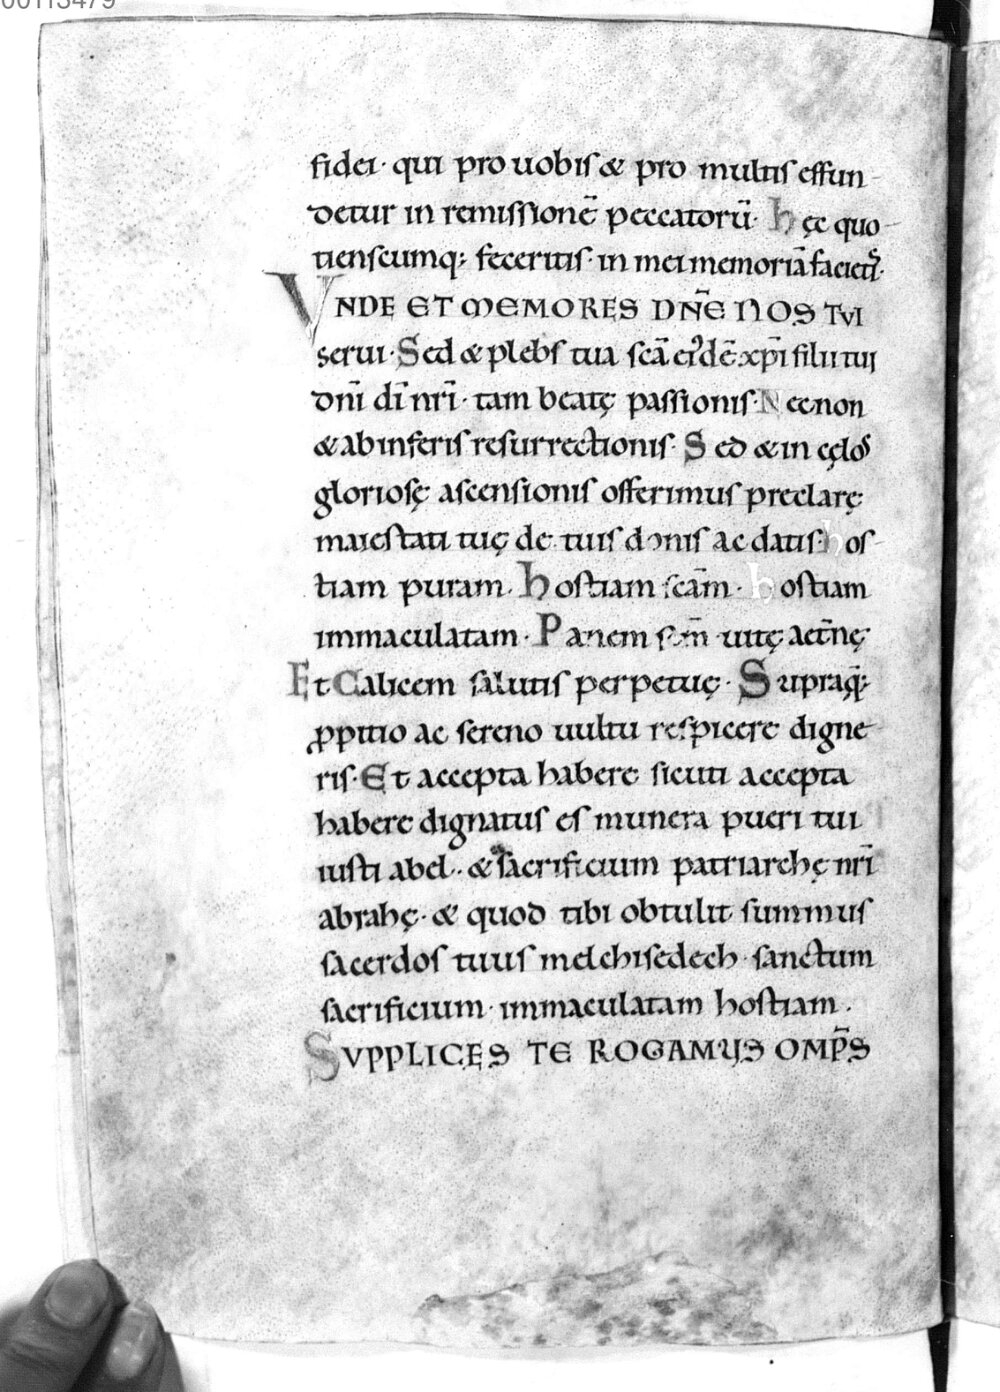 00113479
fidei· qui pro uobis & pro multis effun
detur in remissionē peccatorū· hęc quo
tienscumq; feceritis· in mei memoriā facietis·
VNDE ET MEMORES DNĒ NOS TVI
serui· Sed & plebs tua scā eiusdē xp̄i filii tui
dn̄i dī nr̄i· tam beatę passionis· Necnon
& ab inferis resurrectionis· Sed & in cęlos
gloriosę ascensionis offerimus preclarę
maiestati tuę de tuis donis ac datis· hos
tiam puram· hostiam scām· hostiam
immaculatam· Panem scm̄ uitę aet̄nę·
Et Calicem salutis perpetuę· Supraq̄;
ꝓpitio ac sereno uultu respicere digne
ris· Et accepta habere sicuti accepta
habere dignatus es munera pueri tui
iusti abel·· & sacrificium patriarchę nr̄i
abrahę· & quod tibi obtulit summus
sacerdos tuus melchisedech· sanctum
sacrificium· immaculatam hostiam·
SVPPLICES TE ROGAMUS OMP̄S